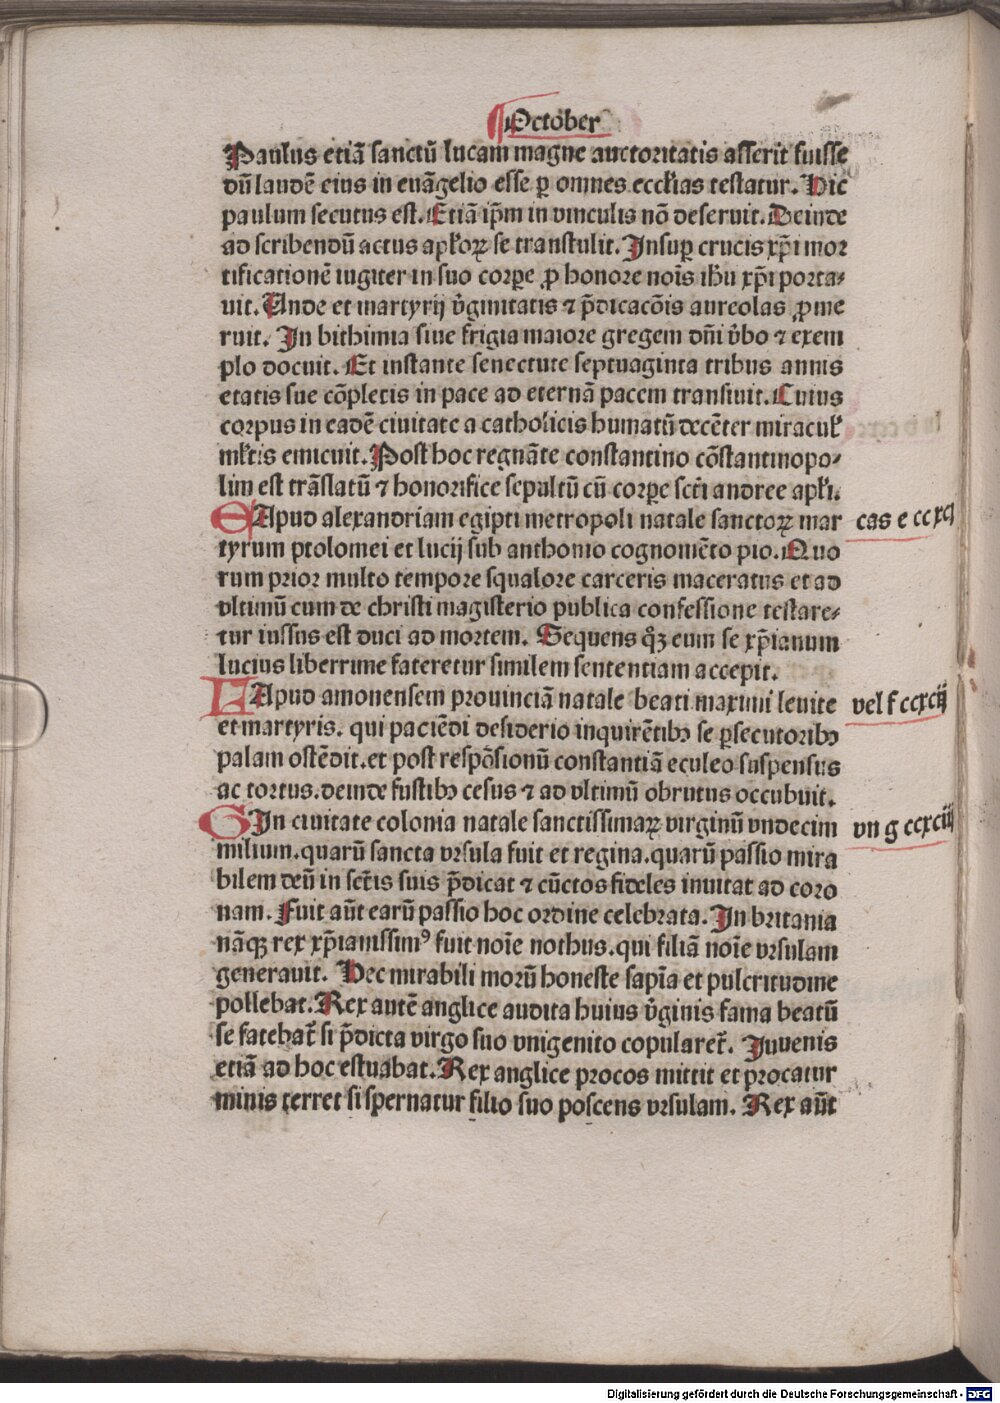 October
Paulus etiā sanctū lucam magne auctoritatis asserit fuisse
dū laudē eius in euāgelio esse ꝑ omnes ecclīas testatur. Hic
paulum secutus est. Etiā ip̄m in vinculis nō deseruit. Deinde
ad scribendū actus apl̄oꝝ se transtulit. Insuꝑ crucis xp̄i mor
tificationē iugiter in suo corpe ꝓ honore noīs ih̄u xp̄i porta⸗
uit. Unde et martyrij v̄ginitatis ⁊ p̄dicacōis aureolas ꝓme
ruit. In bithimia siue frigia maiore gregem dn̄i v̄bo ⁊ exem
plo docuit. Et instante senectute septuaginta tribus annis
etatis sue cōpletis in pace ad eternā pacem transiuit. Cuius
corpus in eadē ciuitate a catholicis humatū decēter miracul̄
ml̄tis emicuit. Post hoc regnāte constantino cōstantinopo⸗
lim est trāslatū ⁊ honorifice sepultū cū corꝑe scti andree apl̄i.
E Apud alexandriam egipti metropoli natale sanctoꝝ mar cas e ccxcj
tyrum ptolomei et lucij sub anthonio cognomēto pio. Quo
rum prior multo tempore squalore carceris maceratus et ad
vltimū cum de christi magisterio publica confessione testare⸗
tur iussus est duci ad mortem. Sequens qȝ eum se xp̄ianum
lucius liberrime fateretur similem sententiam accepit.
F Apud amonensem prouinciā natale beati maximi leuite vel f ccxcij
et martyris. qui paciēdi desiderio inquirētibꝫ se ꝑsecutoribꝫ
palam ostēdit. et post respōsionū constantiā eculeo suspensus
ac tortus. deinde fustibꝫ cesus ⁊ ad vltimū obrutus occubuit.
G In ciuitate colonia natale sanctissimaꝝ virginū vndecim vn g ccxciij
milium. quarū sancta vrsula fuit et regina. quarū passio mira
bilem deū in sct̄is suis p̄dicat ⁊ cūctos fideles inuitat ad coro
nam. Fuit aūt earū passio hoc ordine celebrata. In britania
nāqꝫ rex xp̄ianissimꝰ fuit noīe nothus. qui filiā noīe vrsulam
generauit. Hec mirabili morū honeste sapīa et pulcritudine
pollebat. Rex autē anglice audita huius v̄ginis fama beatū
se fatebat̄ si p̄dicta virgo suo vnigenito copularet̄. Iuuenis
etiā ad hoc estuabat. Rex anglice procos mittit et procatur
minis terret si spernatur filio suo poscens vrsulam. Rex aūt
Digitalisierung gefördert durch die Deutsche Forschungsgemeinschaft - DFG